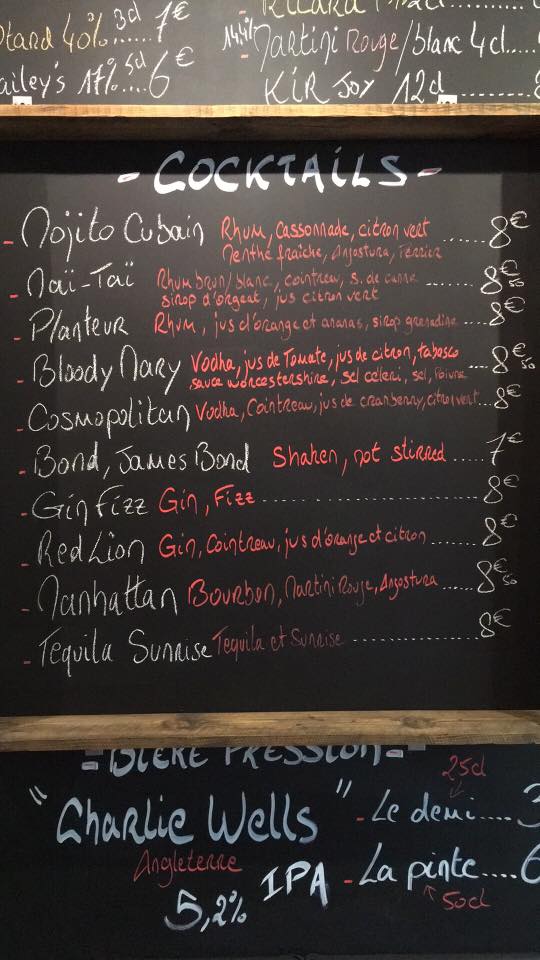 Otard 40% 3cl 7€
ailey's 17% 5cl ..... 6€
14,4% Martini Rouge/blanc 4cl.....
KiR JOY 12cl
- COCKTAiLS -
- Mojito Cubain Rhum, cassonnade, citron vert ...... 8€
Menthe fraîche, Angostura, Perrier
- Maï-Taï Rhum brun/blanc, cointreau, s. de canne ........ 8€50
sirop d'orgeat, jus citron vert
- Planteur Rhum, jus d'orange et ananas, sirop grenadine ... 8€
- Bloody Mary Vodka, jus de Tomate, jus de citron, tabasco ... 8€50
sauce worcestershire, sel celleri, sel, Poivre
- Cosmopolitan Vodka, Cointreau, jus de cranberry, citron vert... 8€
- Bond, James Bond Shaken, not stirred ..... 7€
- Gin Fizz Gin, Fizz .............................. 8€
- Red Lion Gin, Cointreau, jus d'orange et citron ........ 8€
- Manhattan Bourbon, Martini Rouge, Angostura ..... 8€50
- Tequila Sunrise Tequila et Sunrise ................ 8€
- BIÈRE PRESSION -
25cl
"Charlie Wells" - Le demi.... 3
Angleterre IPA - La pinte.... 6
5,2% 50cl